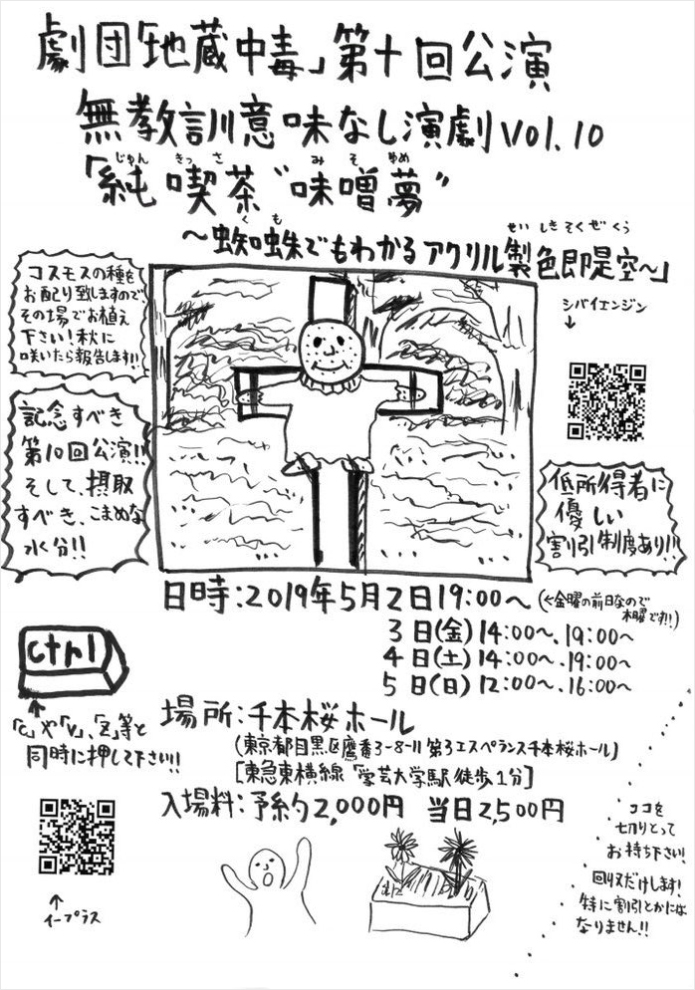 劇団「地蔵中毒」第十回公演
無教訓意味なし演劇vol.10
じゅん きっ さ み そ ゆめ
「純喫茶“味噌夢”
く も せい しき そく ぜ くう
～蜘蛛でもわかるアクリル製色即是空～」
コスモスの種を
お配り致しますので、
その場でお植え
下さい!秋に
咲いたら報告します!!
シバイエンジン
↓
記念すべき
第10回公演!!
そして、摂取
すべき、こまめな
水分!!
低所得者に
優しい
割引制度あり!!
日時:2019年5月2日19:00～(←金曜の前日なので
木曜です!!)
3日(金)14:00～、19:00～
4日(土)14:00～、19:00～
5日(日)12:00～、16:00～
ctrl
↑
「c」や「v」、「z」等と
同時に押して下さい!!
場所:千本桜ホール
(東京都目黒区鷹番3-8-11 第3エスペランス千本桜ホール)
[東急東横線「学芸大学駅」徒歩1分]
入場料:予約2,000円 当日2,500円
↑
イープラス
ココを
切りとって
お持ち下さい!
回収だけします!
特に割引とかには
なりません!!